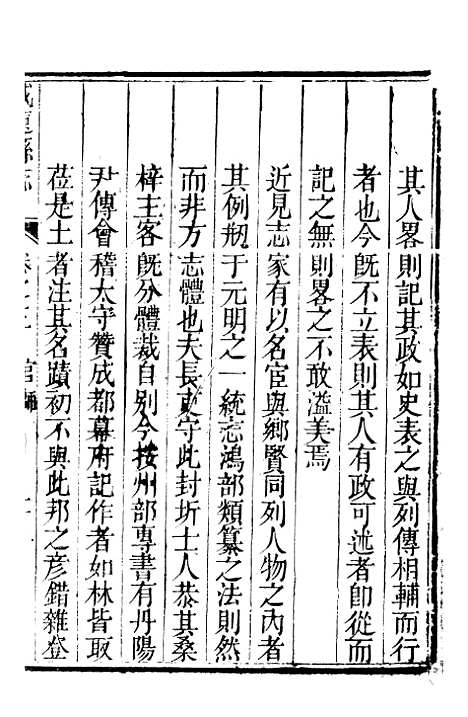 其人畧則記其政如史表之與列傳相輔而行
者也今旣不立表則其人有政可述者卽從而
記之無則畧之不敢溢美焉
近見志家有以名宦與鄉賢同列人物之內者
其例刱于元明之一統志鴻部類纂之法則然
而非方志體也夫長吏守此封圻士人恭其桑
梓主客旣分體裁自別今按州部專書有丹陽
尹傳會稽太守贊成都幕府記作者如林皆取
莅是土者注其名蹟初不與此邦之彥錯雜登
縣志